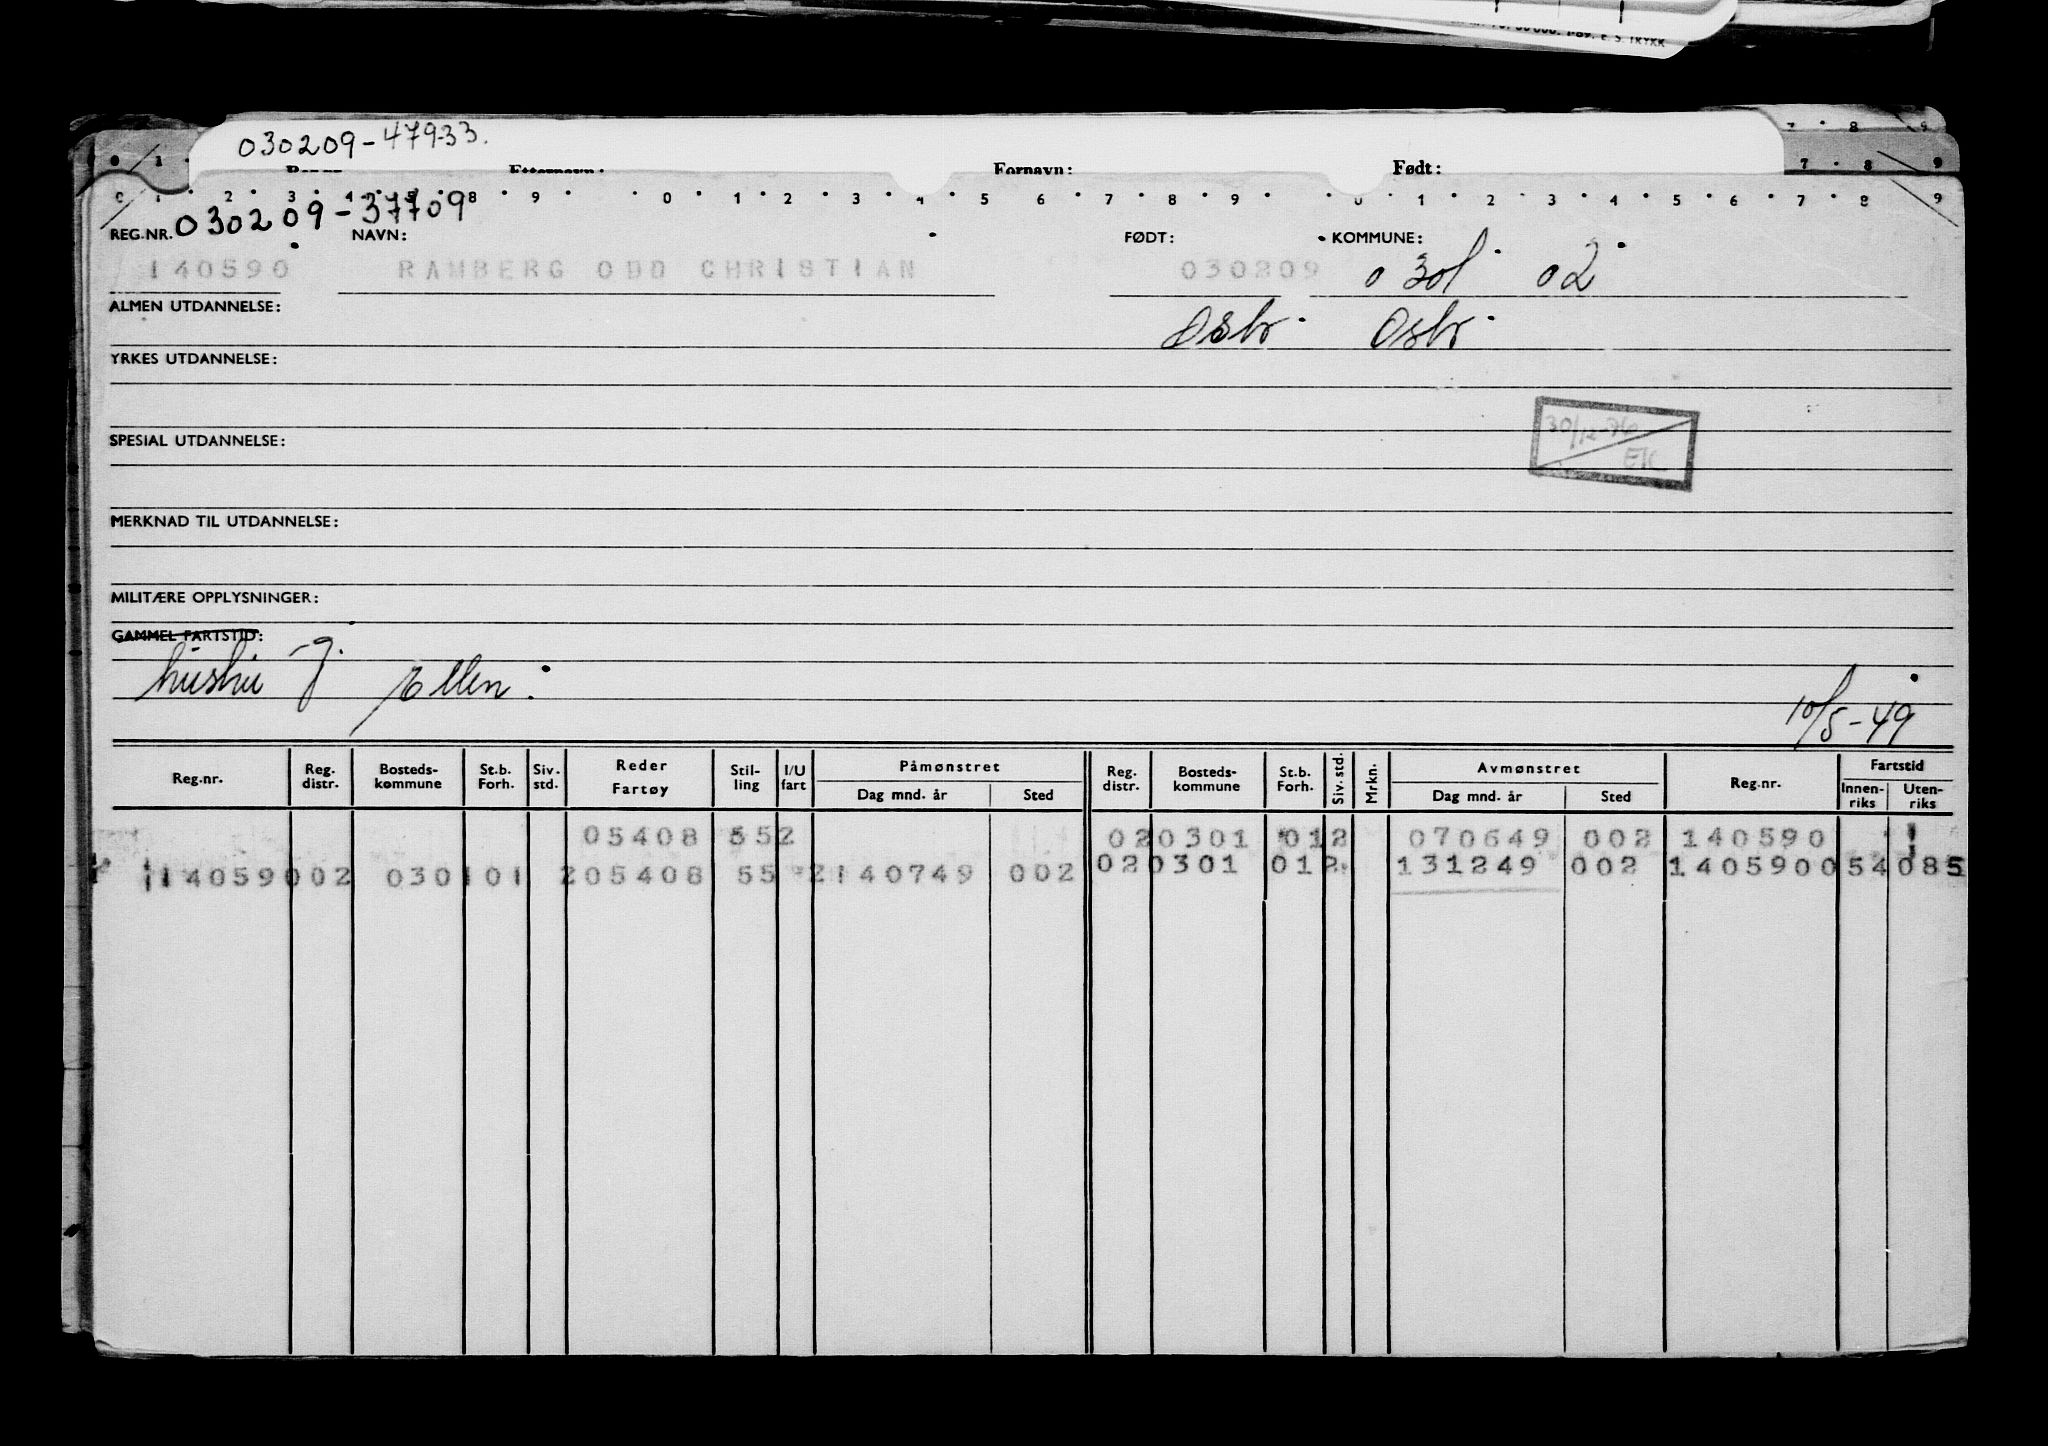 030209-47933.
Fornavn: Født:
0 1 2 3 4 5 8 9 0 1 2 3 4 5 6 7 8 9 0 1 2 3 4 5 6 7 8 9
030209-37709
REG.NR. NAVN: FØDT: KOMMUNE:
140590 RAMBERG ODD CHRISTIAN 030209 0301 02
ALMEN UTDANNELSE: Oslo Oslo
YRKES UTDANNELSE:
30/12-76
EK
SPESIAL UTDANNELSE:
MERKNAD TIL UTDANNELSE:
MILITÆRE OPPLYSNINGER:
GAMMEL FARTSTID:
hustru g. Ellen.
10/5-49
Reg.nr. Reg. distr. Bosteds- kommune St.b. Forh. Siv. std. Reder Fartøy Stil- ling I/U fart Påmønstret Dag mnd. år Sted Reg. distr. Bosteds- kommune St.b. Forh. Siv. std. Mrkn. Avmønstret Dag mnd. år Sted Reg.nr. Fartstid Innen- riks Uten- riks
05408 552 020301 012 070649 002 140590
140590 02 0301 01 2 05408 55 2 140749 002 02 0301 012 131249 002 140590 054 085